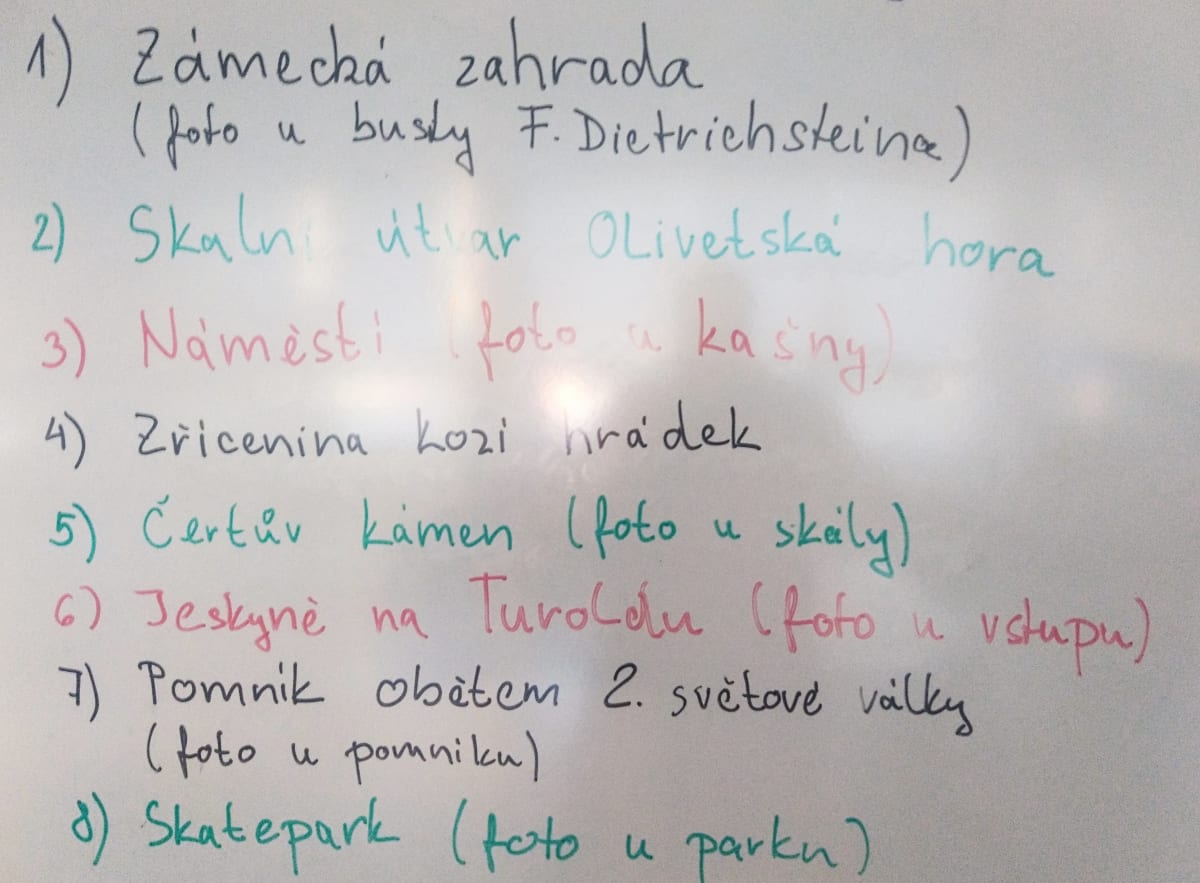 1) Zámecká zahrada
(foto u busty F. Dietrichsteina)
2) Skalní útvar Olivetská hora
3) Náměstí (foto u kašny)
4) Zřícenina kozí hrádek
5) Čertův kámen (foto u skály)
6) Jeskyně na Turoldu (foto u vstupu)
7) Pomník obětem 2. světové války
(foto u pomníku)
8) Skatepark (foto u parku)